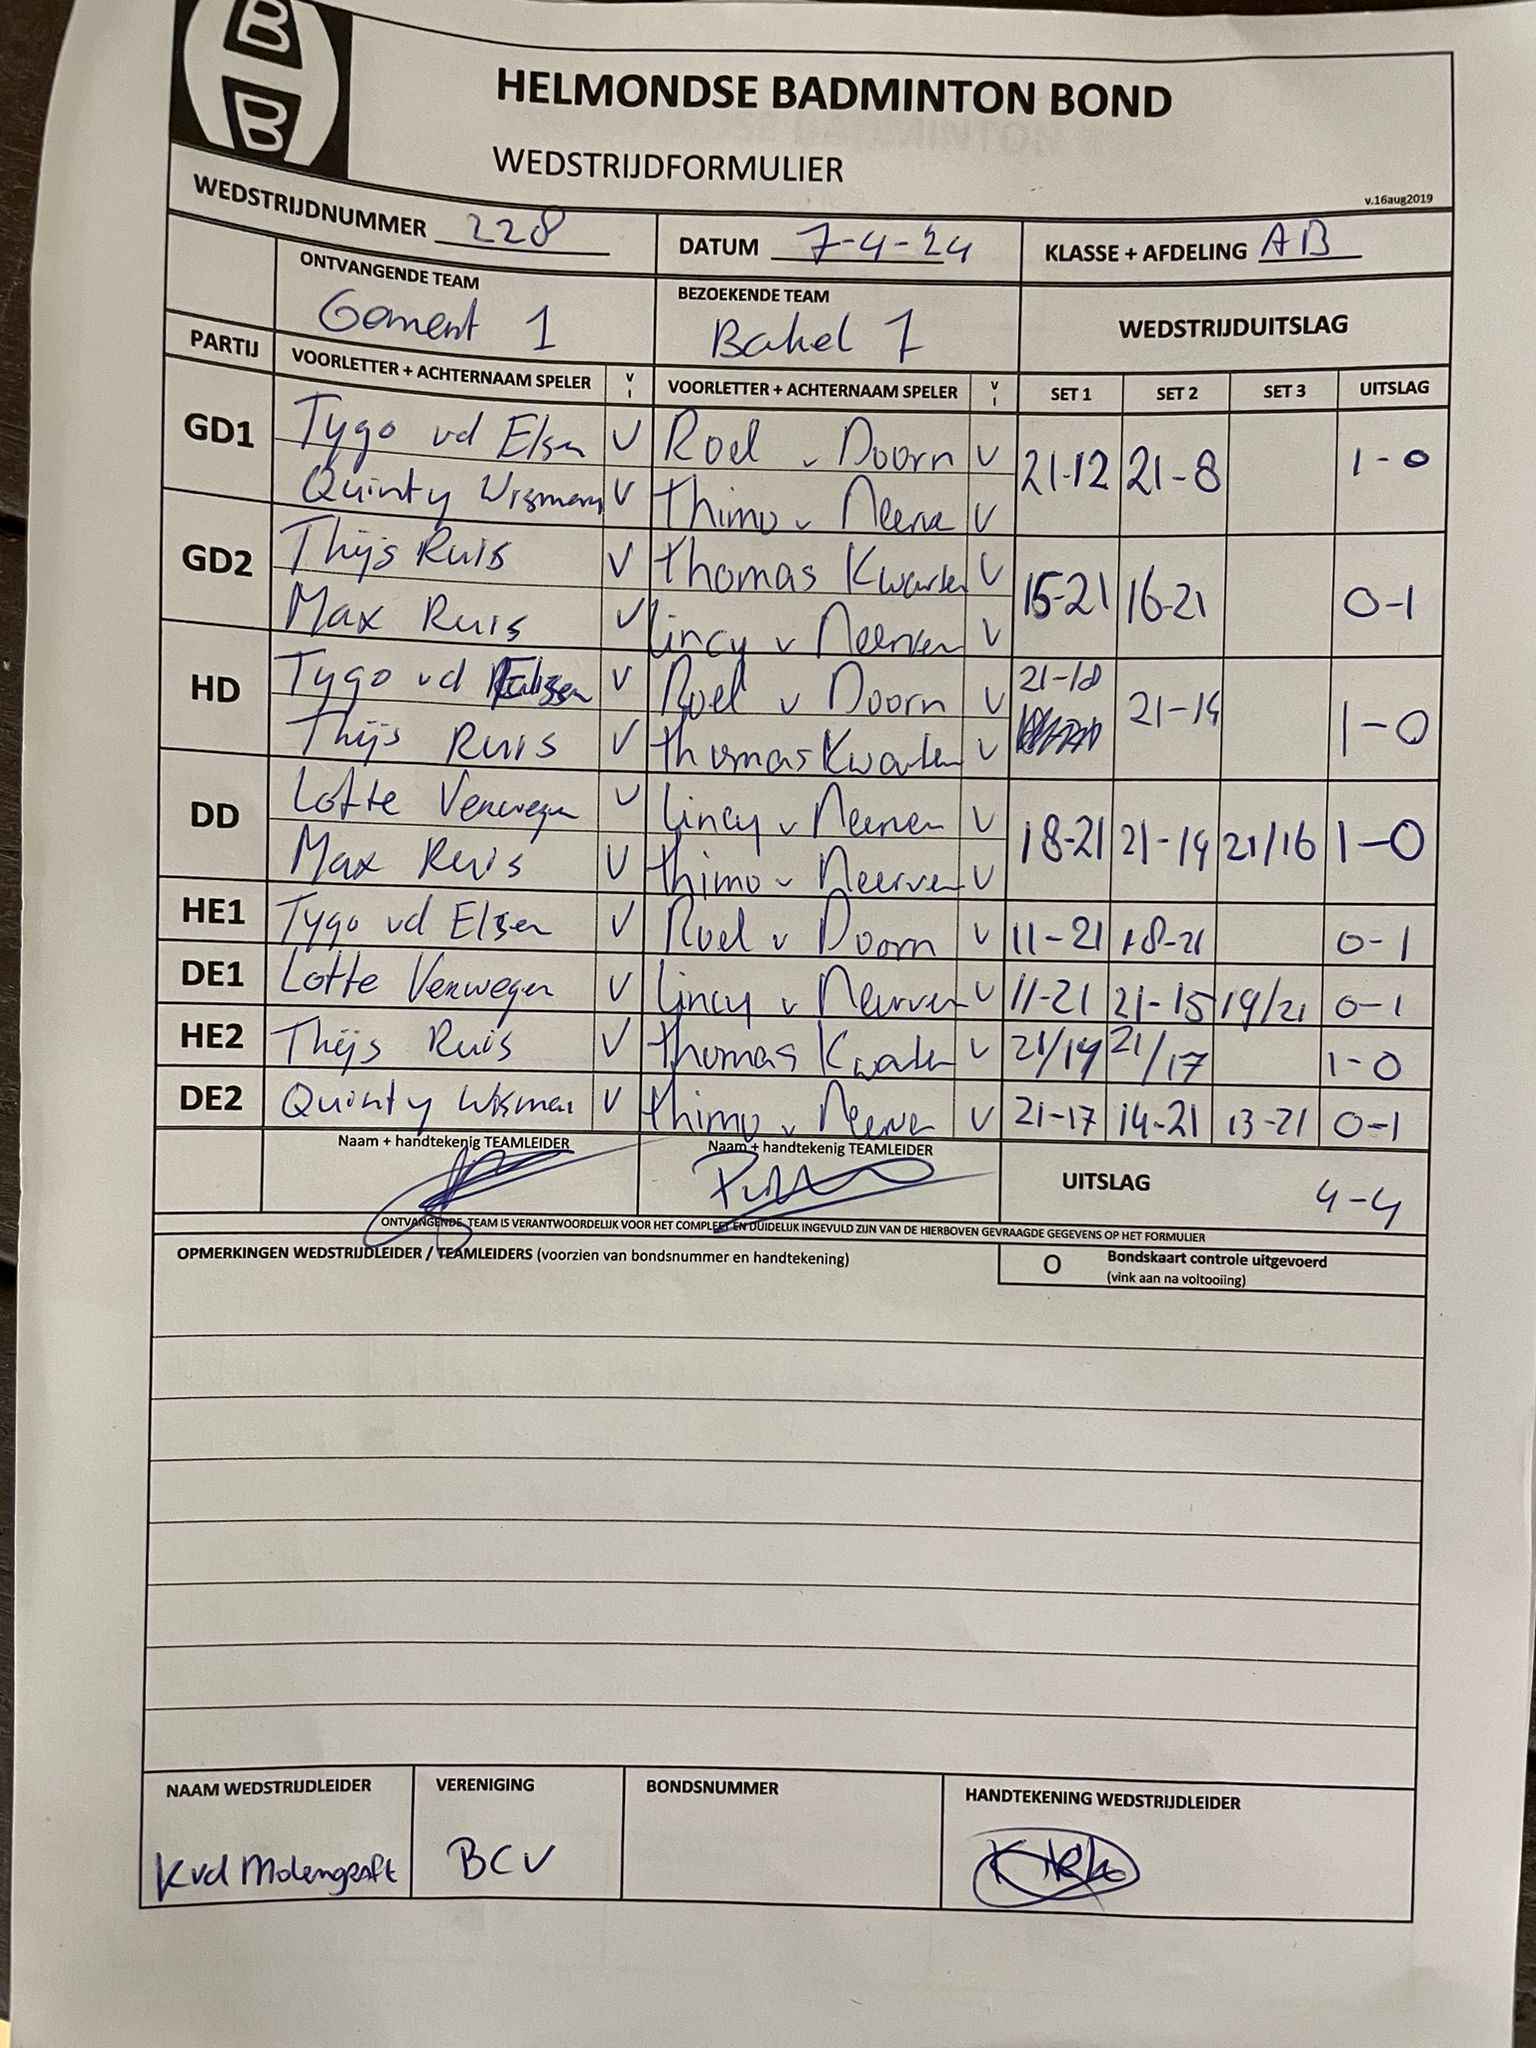 B
B
HELMONDSE BADMINTON BOND
WEDSTRIJDFORMULIER
v.16aug2019
WEDSTRIJDNUMMER 228 DATUM 7-4-'24 KLASSE + AFDELING AB
ONTVANGENDE TEAM BEZOEKENDE TEAM
Gement 1 Bakel 1 WEDSTRIJDUITSLAG
PARTIJ VOORLETTER + ACHTERNAAM SPELER V I VOORLETTER + ACHTERNAAM SPELER V I SET 1 SET 2 SET 3 UITSLAG
GD1 Tygo vd Elsen V Roel v Doorn V 21-12 21-8 1-0
Quinty Wisman V Thimo v V
GD2 Thijs Ruis V Thomas V 15-21 16-21 0-1
Max Ruis V Lincy v Neerven V
HD Tygo vd Elsen V Roel v Doorn V 21-18 21-14 1-0
Thijs Ruis V Thomas V
DD Lotte Verwegen V Lincy v Neerven V 18-21 21-19 21/16 1-0
Max Ruis V Thimo v Neerven V
HE1 Tygo vd Elsen V Roel v Doorn V 11-21 18-21 0-1
DE1 Lotte Verwegen V Lincy v Neerven V 11-21 21-15 19/21 0-1
HE2 Thijs Ruis V Thomas V 21/19 21/17 1-0
DE2 Quinty Wisman V Thimo v V 21-17 14-21 13-21 0-1
Naam + handtekenig TEAMLEIDER Naam + handtekenig TEAMLEIDER
UITSLAG 4-4
ONTVANGENDE TEAM IS VERANTWOORDELIJK VOOR HET COMPLEET EN DUIDELIJK INGEVULD ZIJN VAN DE HIERBOVEN GEVRAAGDE GEGEVENS OP HET FORMULIER
OPMERKINGEN WEDSTRIJDLEIDER / TEAMLEIDERS (voorzien van bondsnummer en handtekening) O Bondskaart controle uitgevoerd
(vink aan na voltooiing)
NAAM WEDSTRIJDLEIDER VERENIGING BONDSNUMMER HANDTEKENING WEDSTRIJDLEIDER
K vd Molengraft BCV